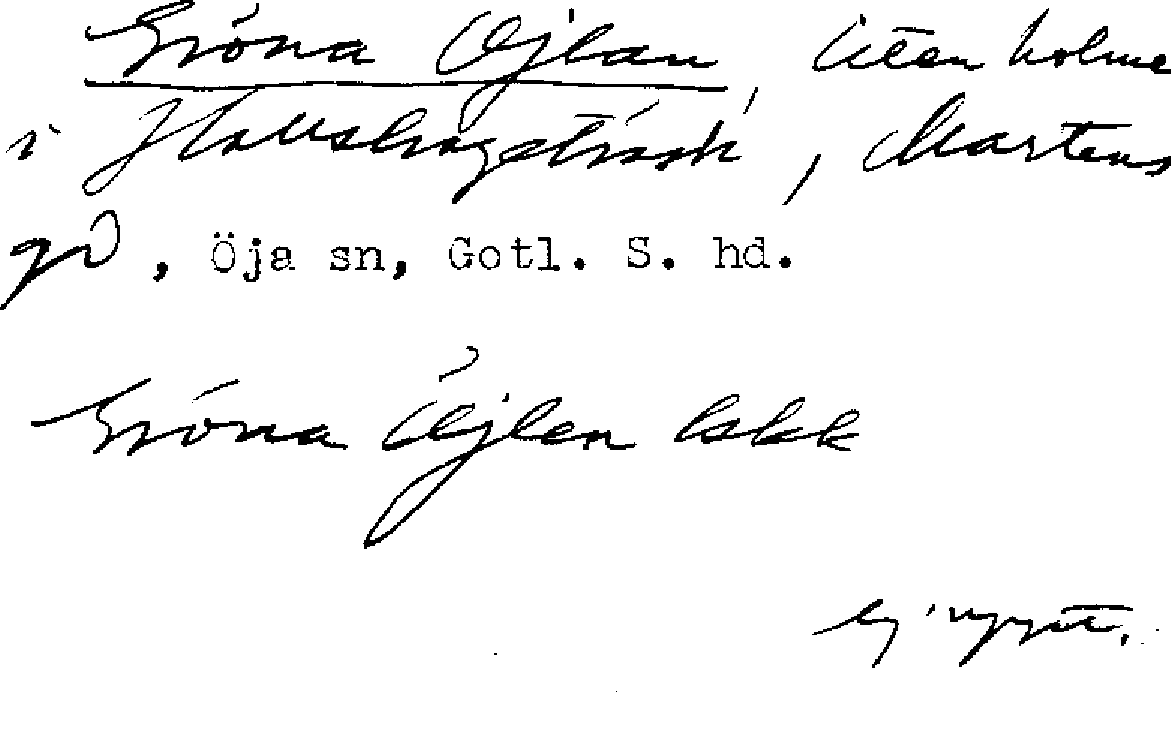 Gröna Öjlan, liten holme
i Hallshagsträsk, Martens
gd, Öja sn, Gotl. S. hd.
Gröna Öjlen Iskk
Ej uppt.